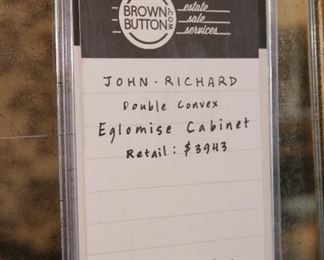 BROWN
BUTTON
.COM
estate
sale
services
JOHN - RICHARD
Double Convex
Eglomise Cabinet
Retail: $3943